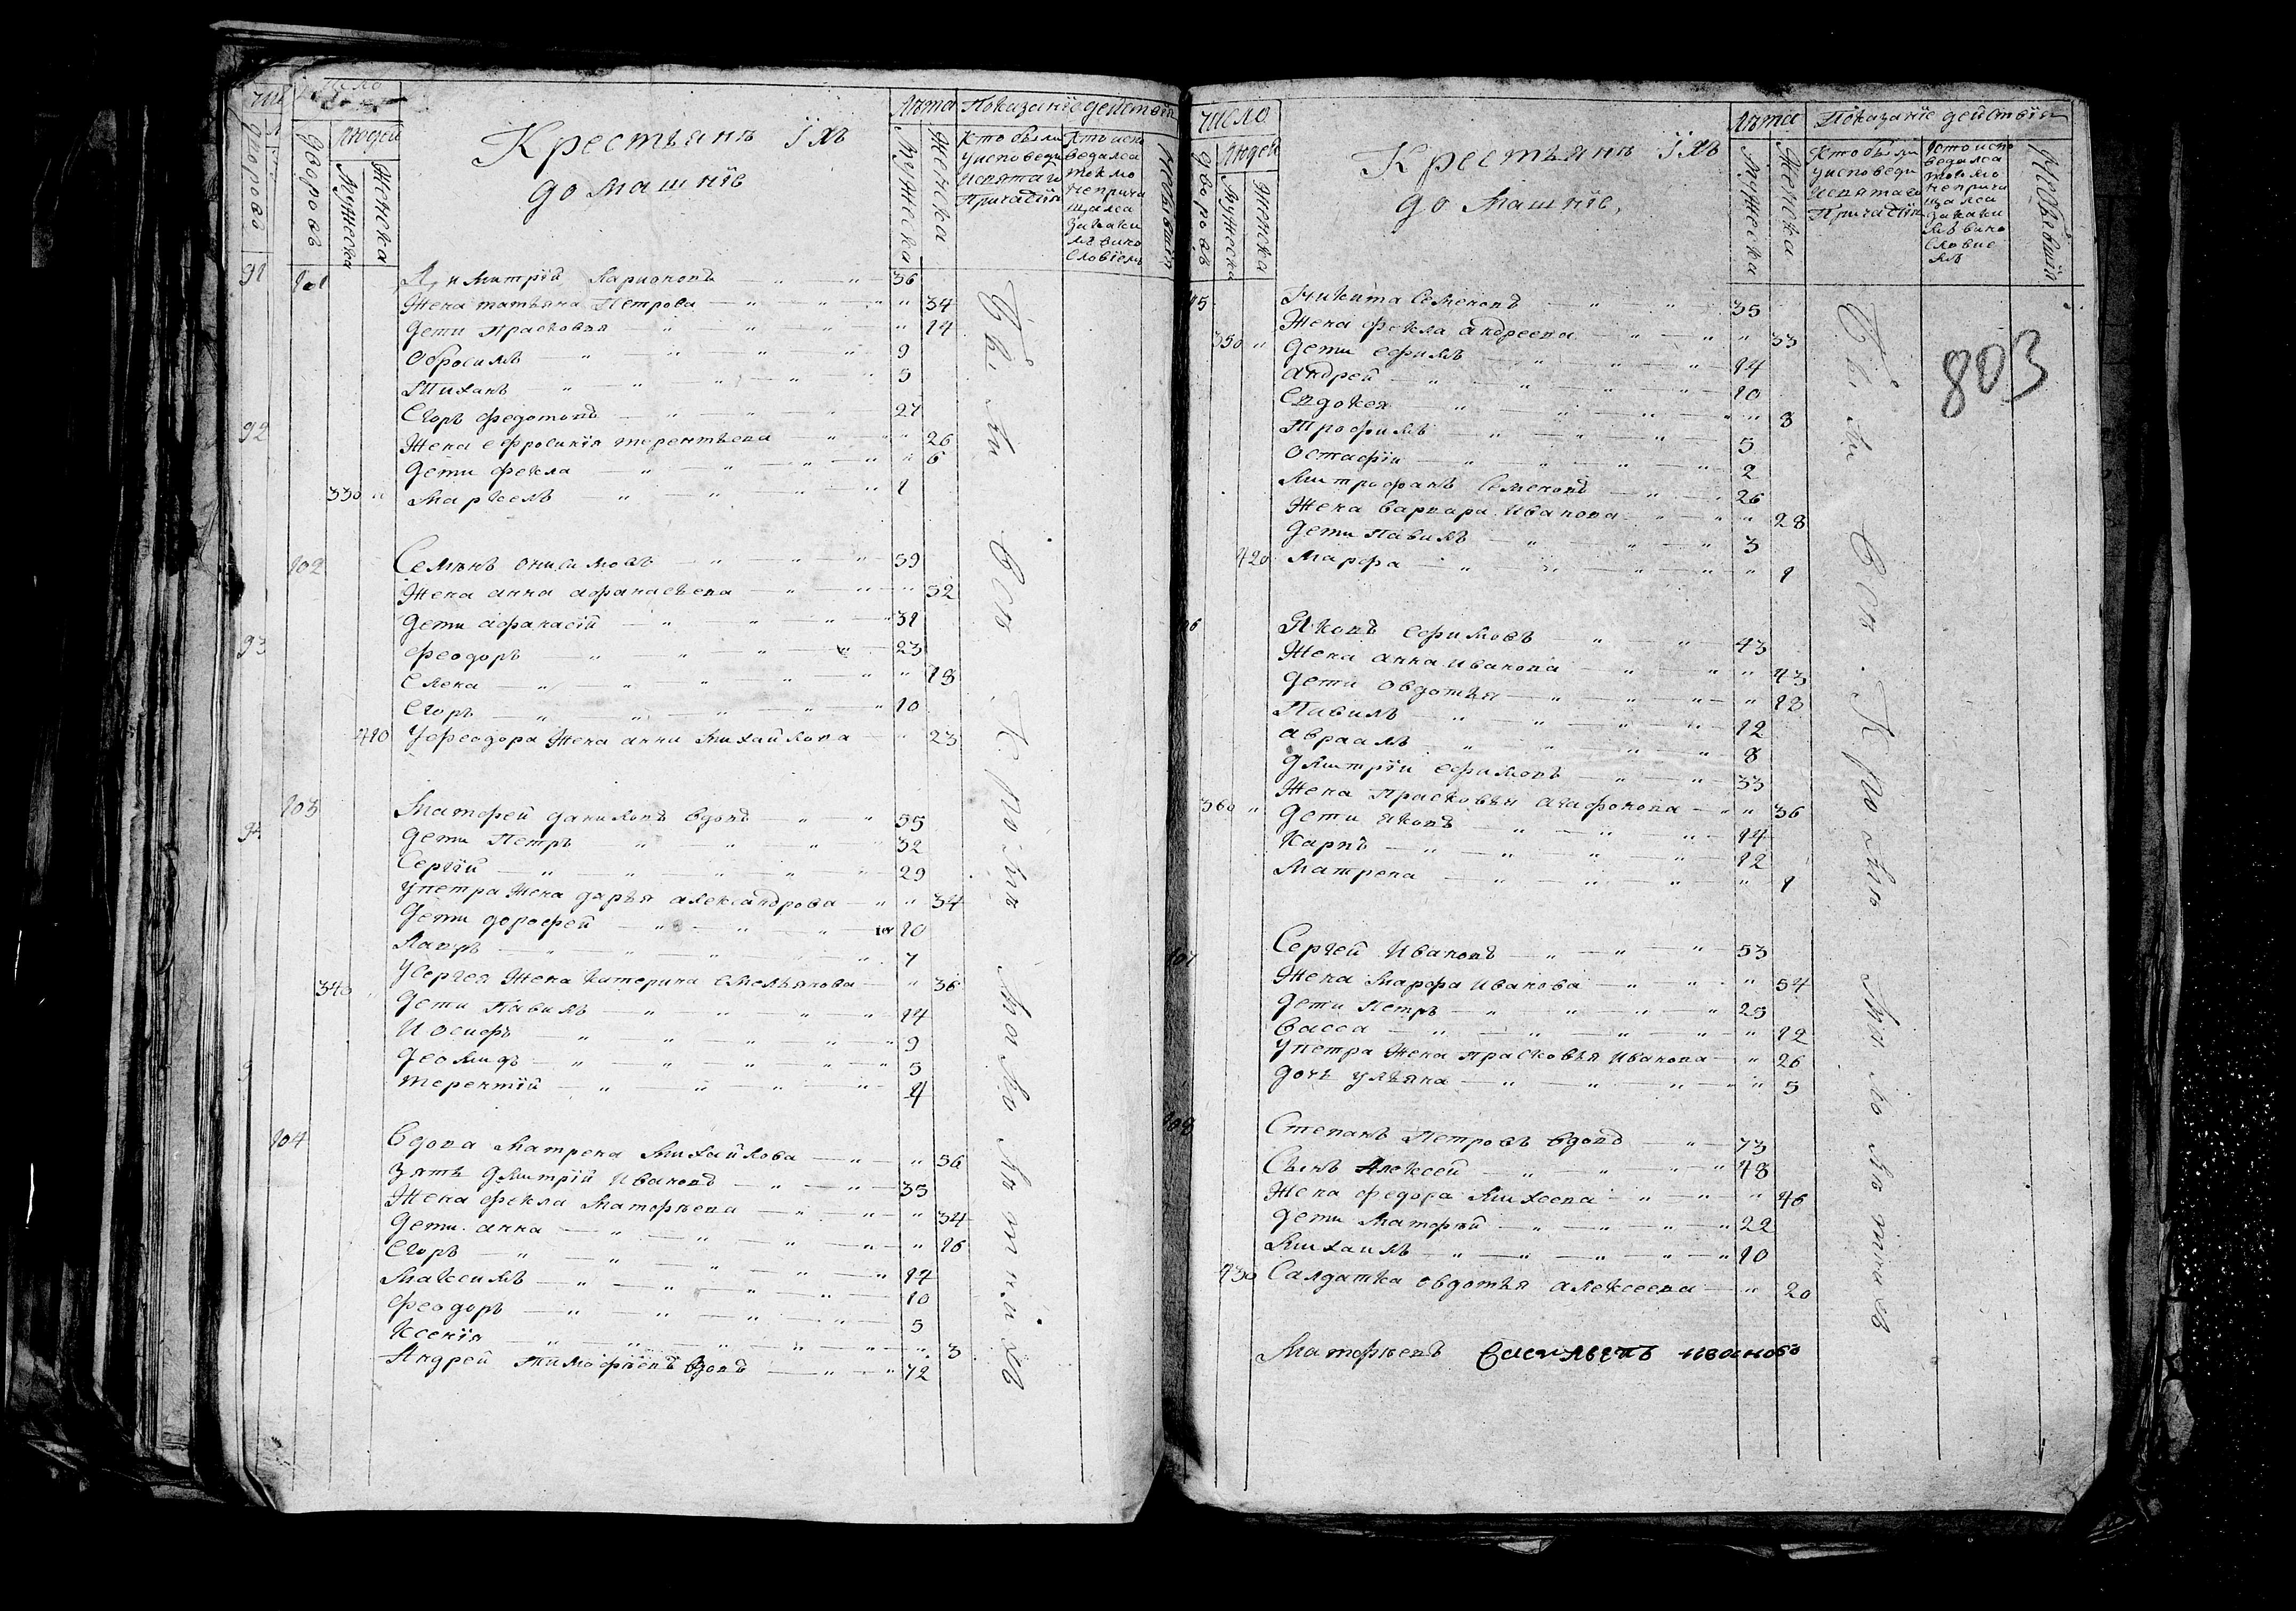 число
Людей
дворовъ
Мужеска
Женска
Крестьянъ Їхъ
домашнїе
Лѣта
Мужеска
Женска
Показанїе действїя
Кто были у исповеди и святаго Причастїя
Кто исповедался токмо не причащался за каким винословіемъ
Небывшїя
101
Димитрїй Ларионовъ 36
Жена татьяна Петрова 34
Дети Прасковья 14
Обросимъ 9
Тиханъ 5
Егоръ федотовъ 27
Жена ефросинїя терентьева 26
Дети фекла 6
330 Маркелъ 1
102
Семѣнъ онисимовъ 59
Жена анна афанасьева 52
Дети афанасїй 31
феодоръ 23
Елена 18
Егоръ 10
410 У феодора жена анна михайлова 23
103
Матфей даниловъ вдовъ 55
Дети Петръ 32
Сергїй 29
У петра жена дарья александрова 34
Дети дорофей 10
Лавръ 7
340 У Сергея жена катерина емельянова 36
Дети Павилъ 14
Иосифъ 9
Деомидъ 5
терентїй 4
104
Вдова матрена михайлова 56
Зять дмитрїй Ивановъ 35
Жена фекла матфѣева 34
Дети анна 16
Егоръ 14
Максимъ 10
феодоръ 5
Ксенїя 3
Андрей тимофѣевъ вдовъ 72
Были Вси Кромѣ Малолѣтнихъ
число
дворовъ
Людей
Мужеска
Женска
Крестьянъ Їхъ
домашнїе,
Лѣта
Мужеска
Женска
Показанїе действїя
Кто были у исповеди и святаго Причастїя
Кто исповедался токмо не причащался за каким винословие мъ
Небывшїя
803
Никита Семеновъ 35
Жена фекла андреева 33
350 Дети ефимъ 14
андрей 10
Евдокея 8
Трофимъ 5
остафїи 2
Митрофанъ Семеновъ 26
Жена варвара Иванова 28
Дети Павилъ 3
420 Марфа 1
Яковъ ефимовъ 43
Жена анна Иванова 43
Дети овдотья 18
Павилъ 12
авраамъ 8
Дмитрїй ефимовъ 33
Жена прасковья агафонова 36
360 Дети яковъ 14
Карпъ 12
Матрена 1
107
Сергей Ивановъ 53
Жена Марфа Иванова 54
Дети Петръ 25
васса 12
У петра жена прасковья Иванова 26
Дочь ульяна 5
108
Степанъ Петровъ вдовъ 73
Сынъ Алексей 48
Жена федора михеева 46
Дети матфѣй 22
Михаилъ 10
430 Салдатка овдотья алексеева 20
Были Вси Кромѣ Малолѣтнихъ